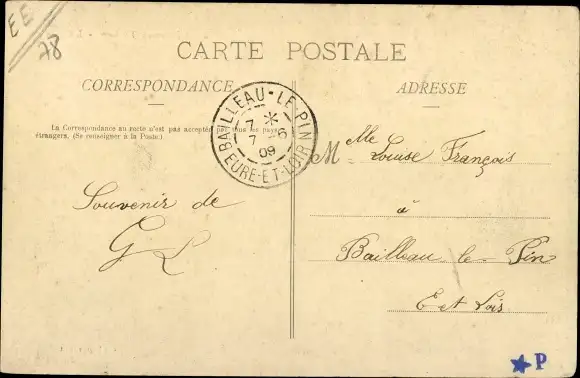 EE
78
CARTE POSTALE
CORRESPONDANCE
ADRESSE
La Correspondance au recto n'est pas acceptée par tous les pays
étrangers. (Se renseigner à la Poste.)
BAILLEAU-LE-PIN
7 *
7 - 6
09
EURE-ET-LOIR
Mlle Louise François
à
Bailleau le Pin
E et Loir
Souvenir de
G L
★ P